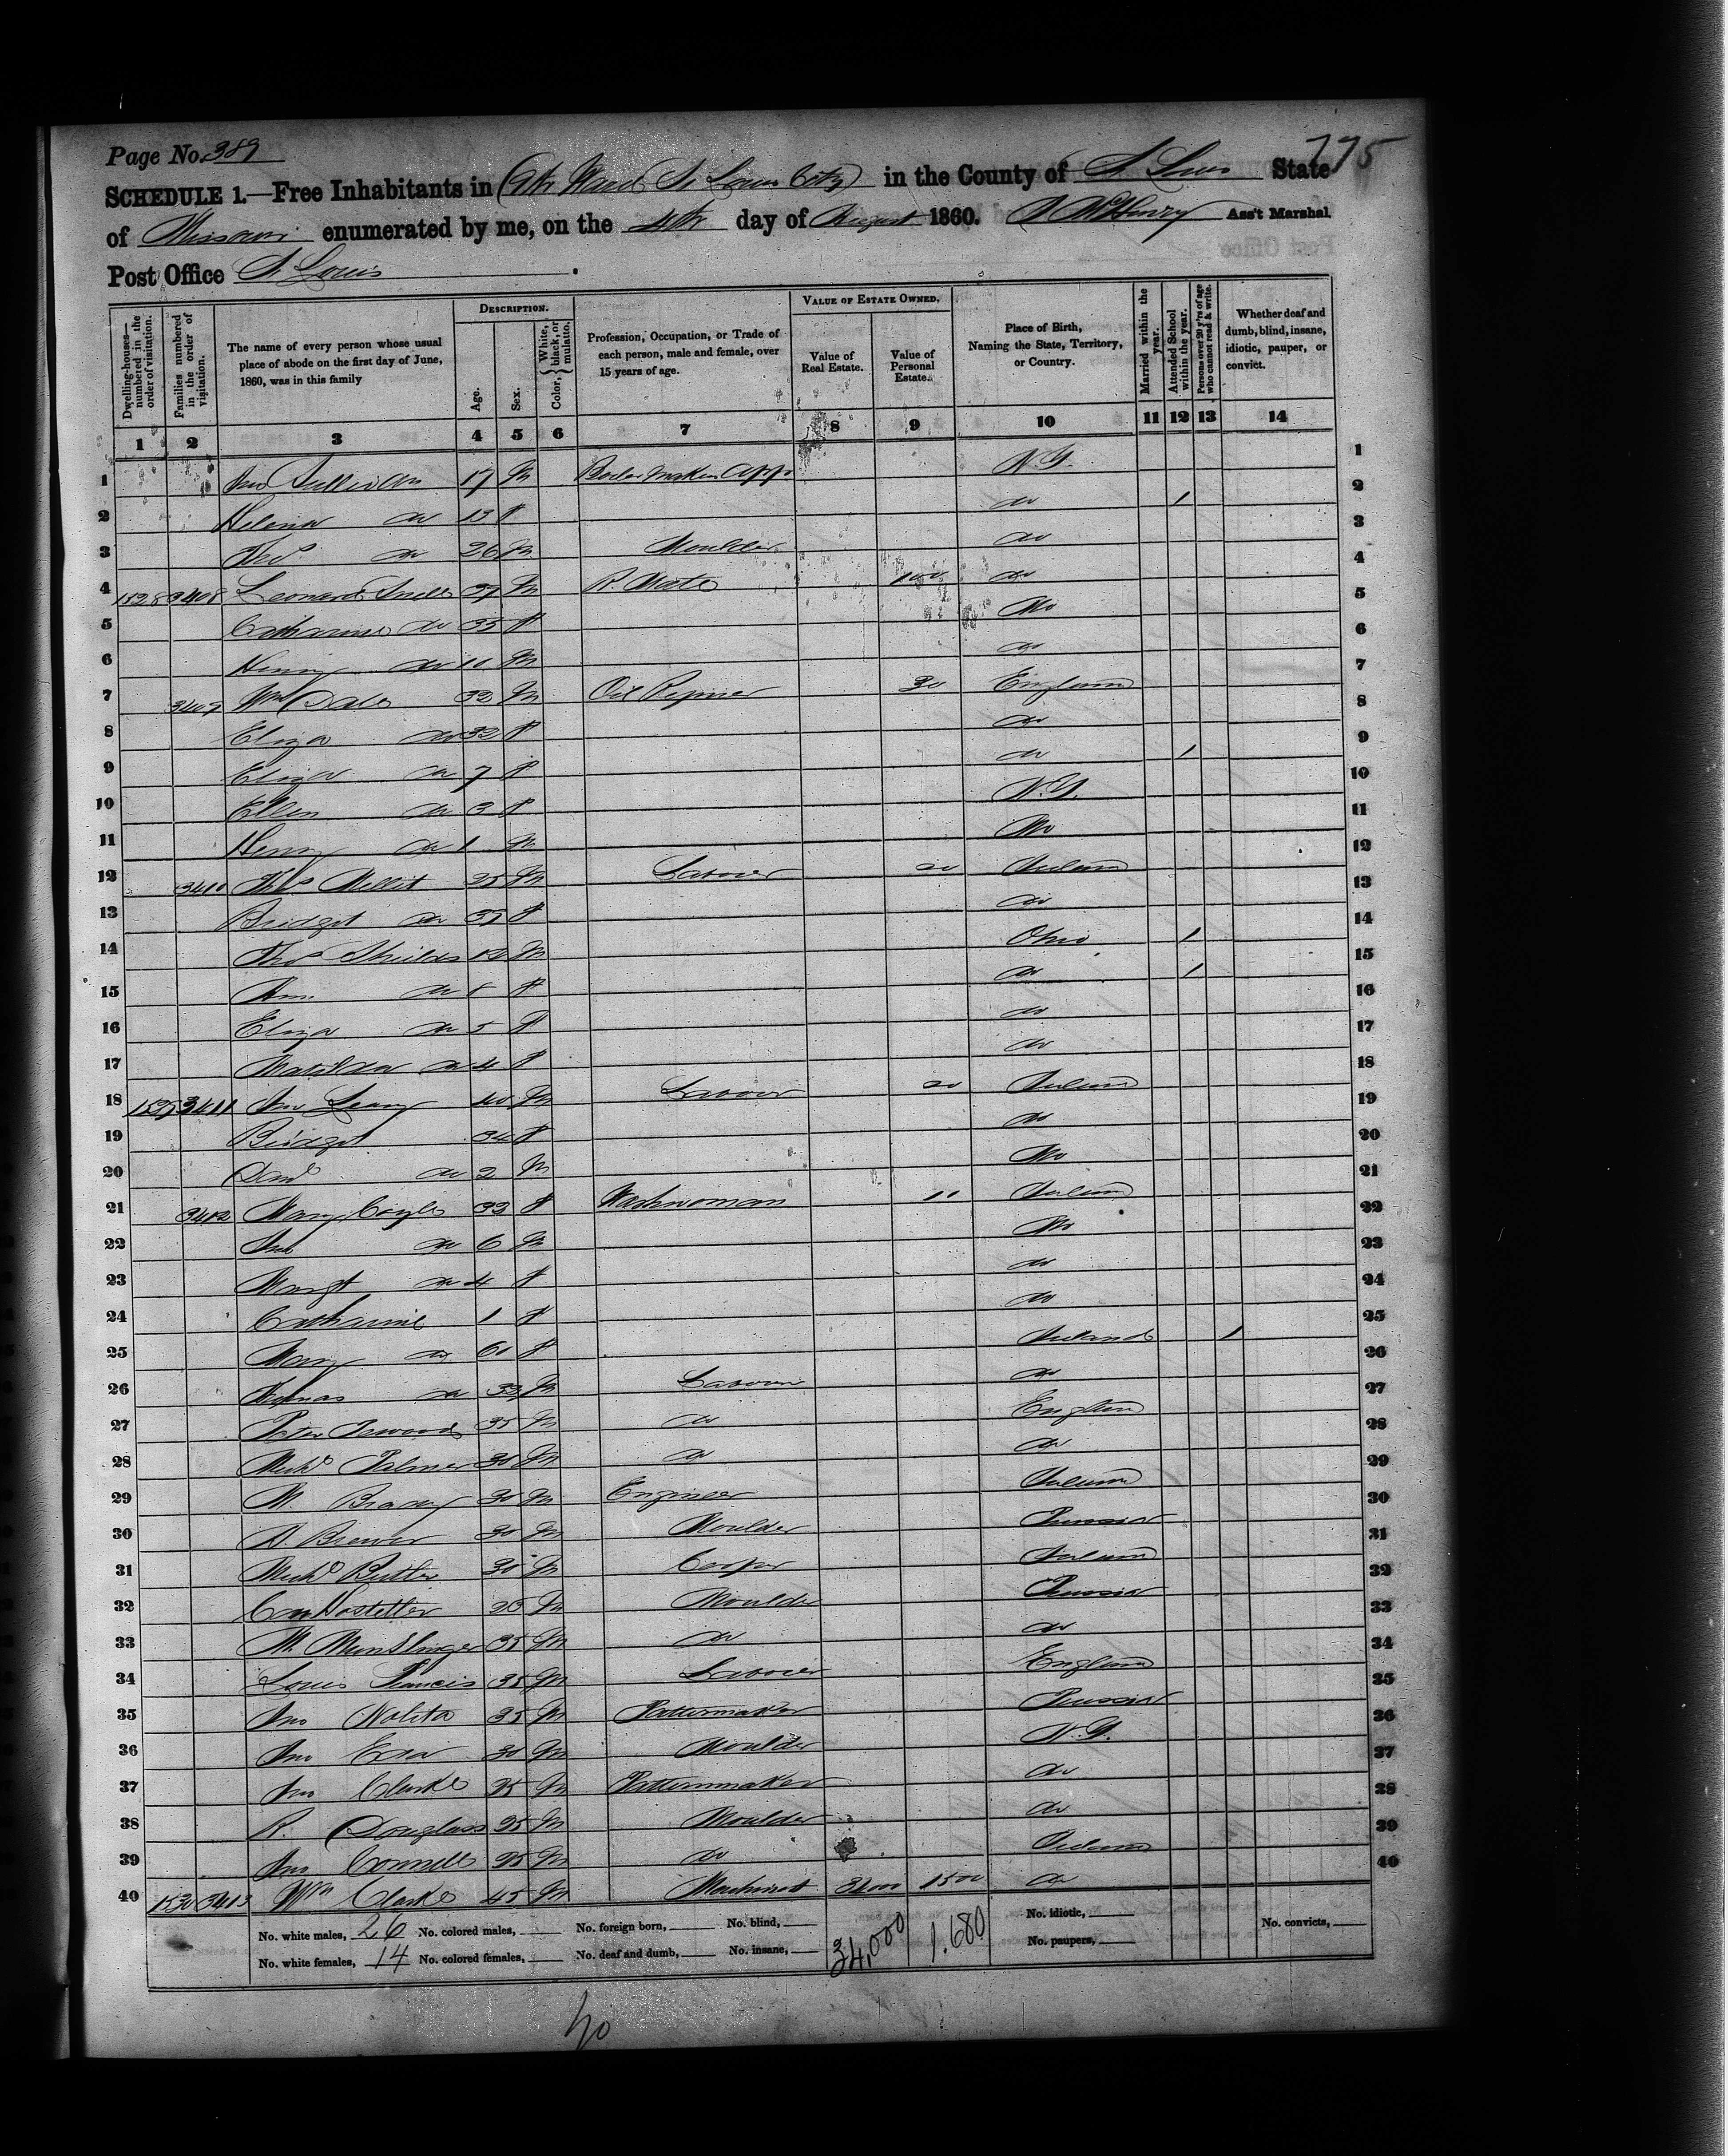 Page No. 389
775
SCHEDULE 1.—Free Inhabitants in (9th Ward St Louis City) in the County of St Louis State
of Missouri enumerated by me, on the 4th day of August 1860. McHenry Ass't Marshal.
Post Office St Louis
Dwelling-houses—numbered in the order of visitation.
Families numbered in the order of visitation.
The name of every person whose usual place of abode on the first day of June, 1860, was in this family
DESCRIPTION.
Age.
Sex.
Color, { White, black, or mulatto.
Profession, Occupation, or Trade of each person, male and female, over 15 years of age.
VALUE OF ESTATE OWNED.
Value of Real Estate.
Value of Personal Estate.
Place of Birth, Naming the State, Territory, or Country.
Married within the year.
Attended School within the year.
Persons over 20 y'rs of age who cannot read & write.
Whether deaf and dumb, blind, insane, idiotic, pauper, or convict.
1 2 3 4 5 6 7 8 9 10 11 12 13 14
1 Jno Sullivan 17 m Boiler maker App. N.Y. 1
2 Helena do 13 f do 1 2
3 Thos do 26 m Moulder do 3
4 1528 3408 Leonard 37 m R. Mate 100 do 4
5 Catharine do 35 f Mo 5
6 Henry do 10 m do 6
7 3409 Wm Dale 32 m Oil Refiner 30 England 7
8 Eliza do 32 f do 8
9 Eliza do 7 f do 1 9
10 Ellen do 3 f N.Y. 10
11 Henry do 1 m Mo 11
12 3410 Thos Mellit 35 m Laborer 20 Ireland 12
13 Bridget do 37 f do 13
14 Thos Shields 12 m Ohio 1 14
15 Ann do 8 f do 1 15
16 Eliza do 5 f do 16
17 Matilda do 4 f do 17
18 1529 3411 Jno Leary 40 m Laborer 20 Ireland 18
19 Bridget 34 f do 19
20 Danl do 2 m Mo 20
21 3412 Mary Coyle 33 f Washwoman 10 Ireland 21
22 Jno do 6 m Mo 22
23 Margt do 4 f do 23
24 Catharine 1 f do 24
25 Mary do 60 f Ireland 1 25
26 Thomas do 33 m Laborer do 26
27 Peter 35 m do England 27
28 Michl Palmer 30 m do do 28
29 M. Brady 30 m Engineer Ireland 29
30 Brewer 30 m Moulder Prussia 30
31 Michl Butler 30 m Cooper Ireland 31
32 Hostetter 28 m Moulder Prussia 32
33 M. 35 m do do 33
34 Louis Francis 35 m Laborer England 34
35 Jno 35 m Patternmaker Prussia 35
36 Jno 30 m Moulder N.Y. 36
37 Jno Clarke 25 m Patternmaker do 37
38 R. Douglass 25 m Moulder do 38
39 Jno Connell 25 m do Ireland 39
40 1530 3413 Wm Clarke 45 m Machinist 34000 1500 do 40
No. white males, 26 No. colored males, No. foreign born, No. blind, No. idiotic, No. convicts,
No. white females, 14 No. colored females, No. deaf and dumb, No. insane, 34,000 1.680 No. paupers,
40